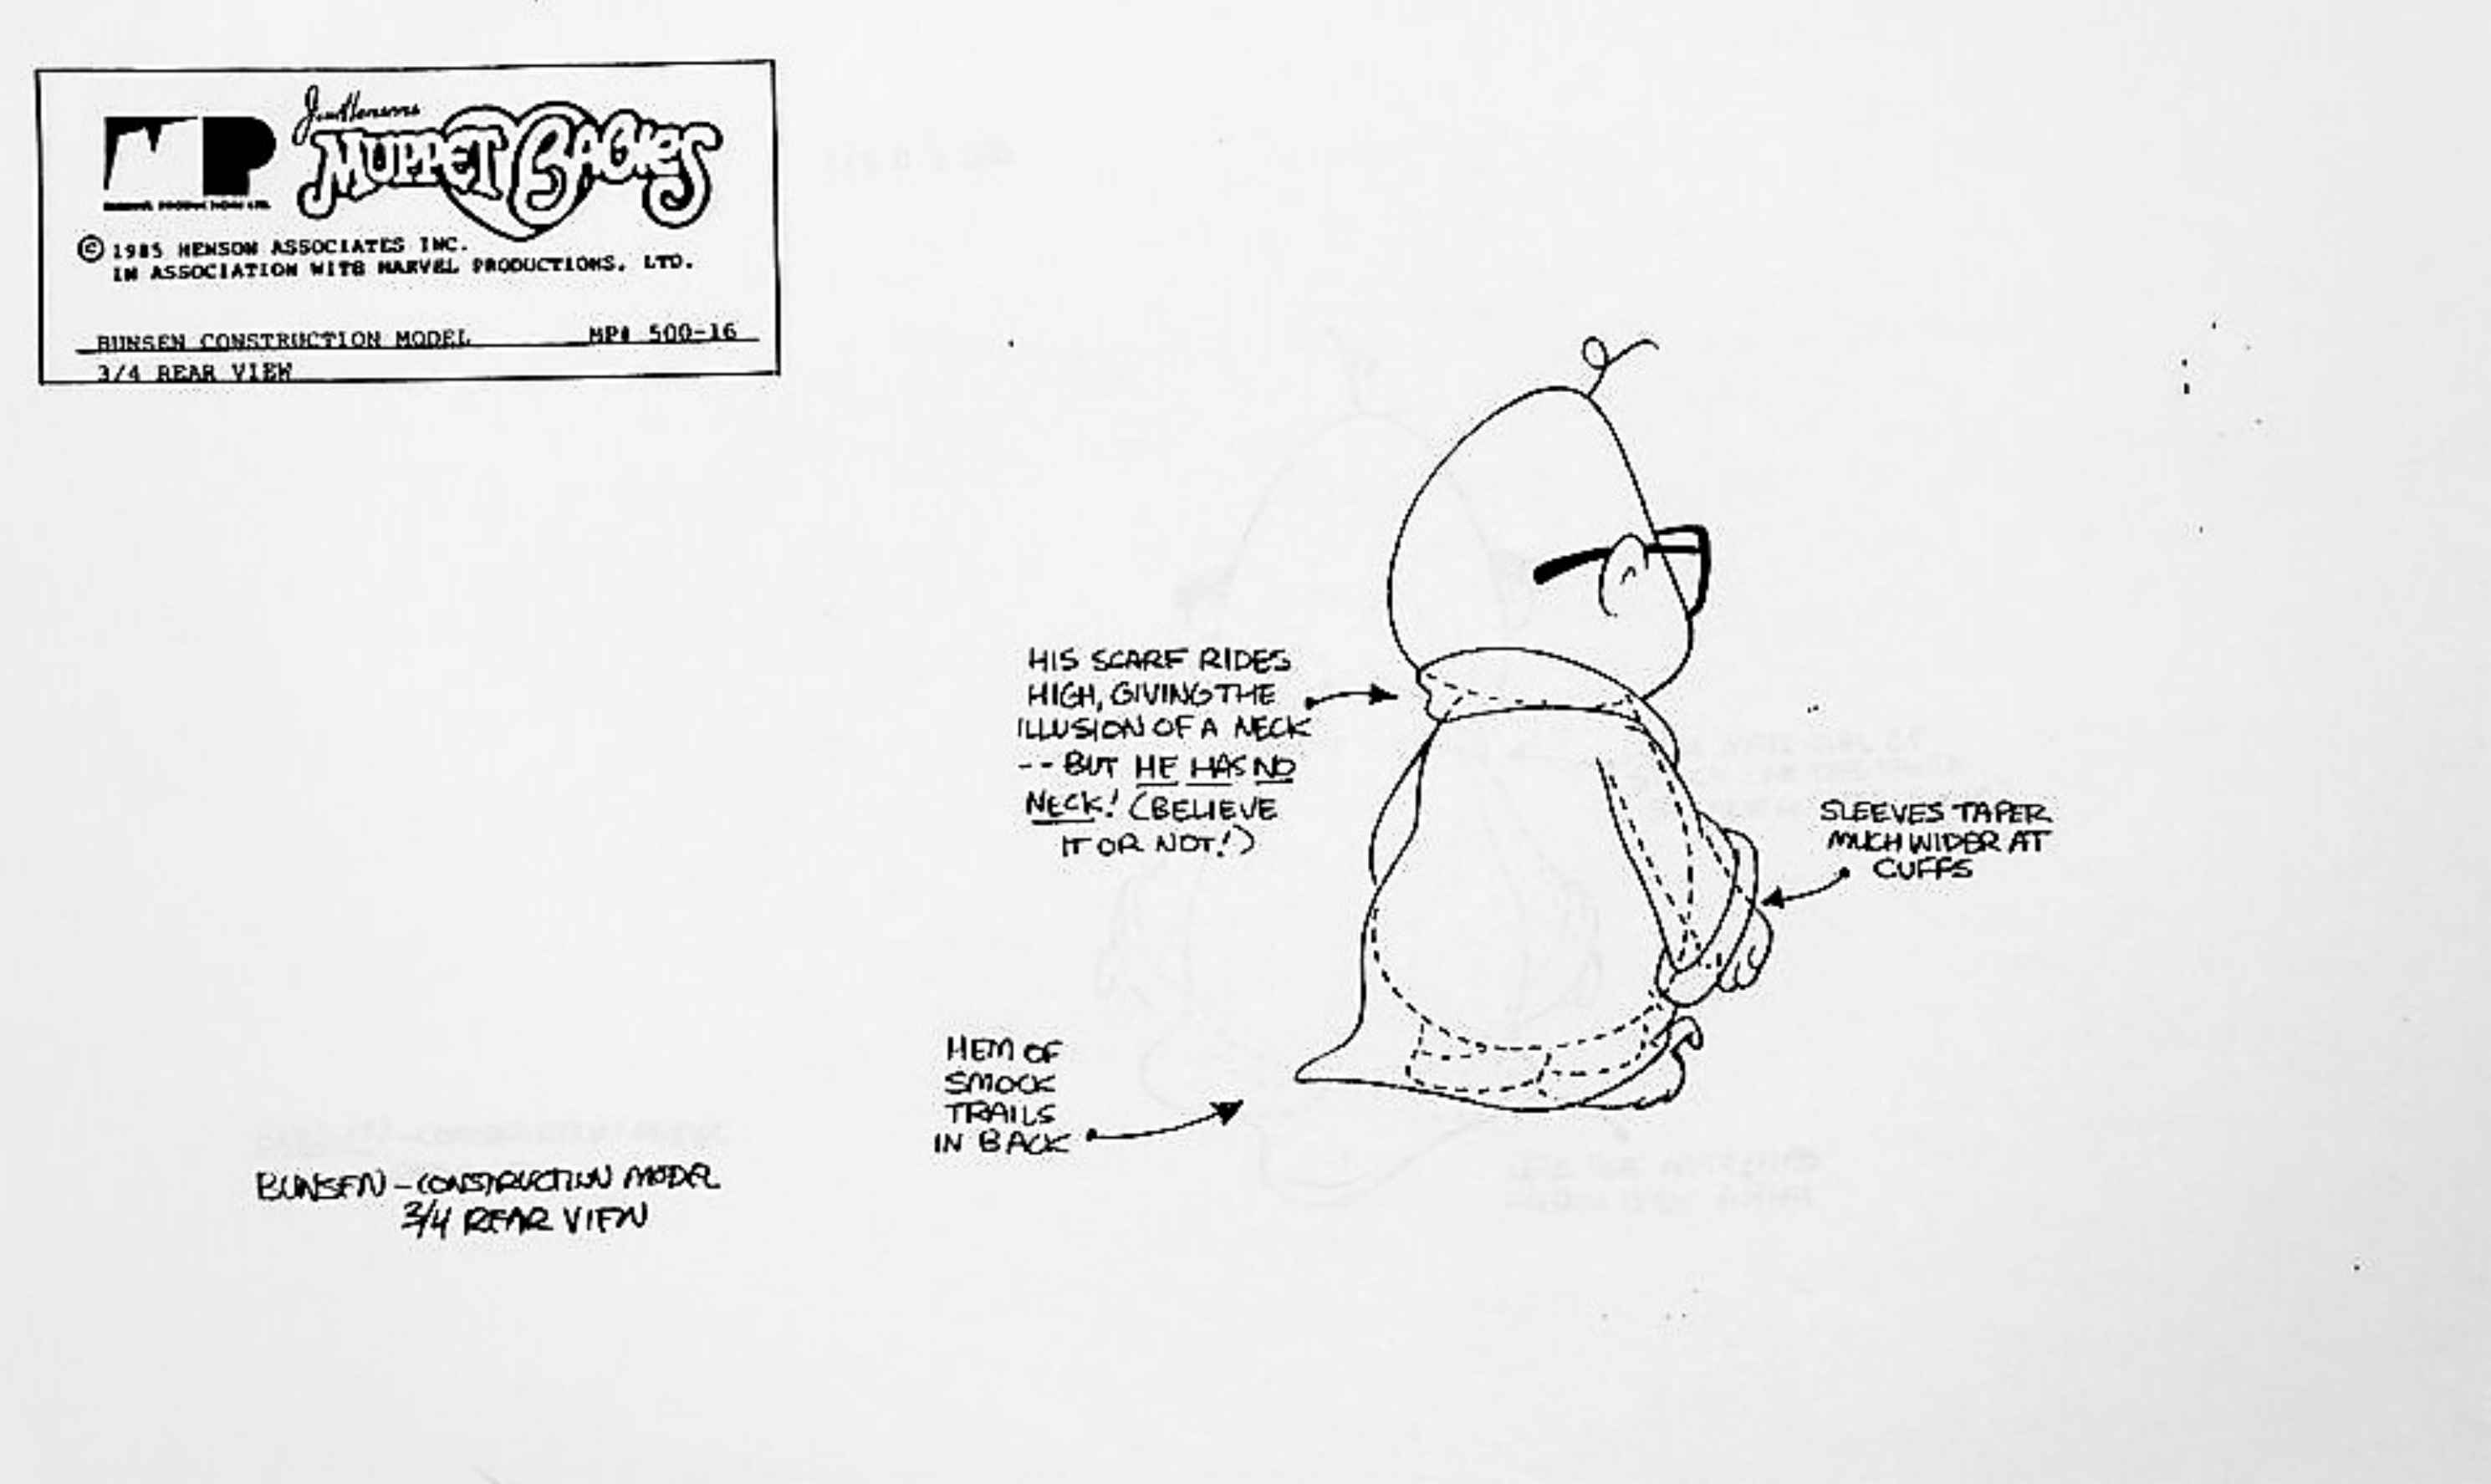 Jim Henson's
MUPPET BABIES
MP
© 1985 HENSON ASSOCIATES INC.
IN ASSOCIATION WITH MARVEL PRODUCTIONS, LTD.
BUNSEN CONSTRUCTION MODEL MP# 500-16
3/4 REAR VIEW
HIS SCARF RIDES
HIGH, GIVING THE
ILLUSION OF A NECK
-- BUT HE HAS NO
NECK! (BELIEVE
IT OR NOT!)
SLEEVES TAPER
MUCH WIDER AT
CUFFS
HEM OF
SMOCK
TRAILS
IN BACK
BUNSEN - CONSTRUCTION MODEL
3/4 REAR VIEW